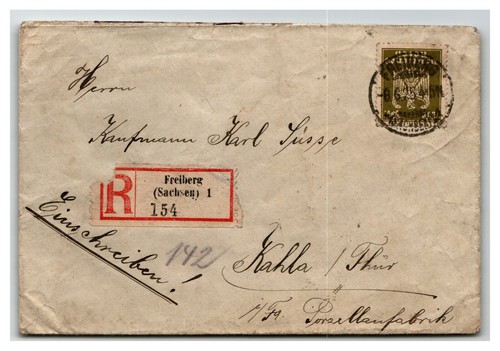 Herrn
Kaufmann Karl Süsse
R
Freiberg
(Sachsen) 1
154
Einschreiben!
142
Kahla / Thür
i/Fa Porzellanfabrik